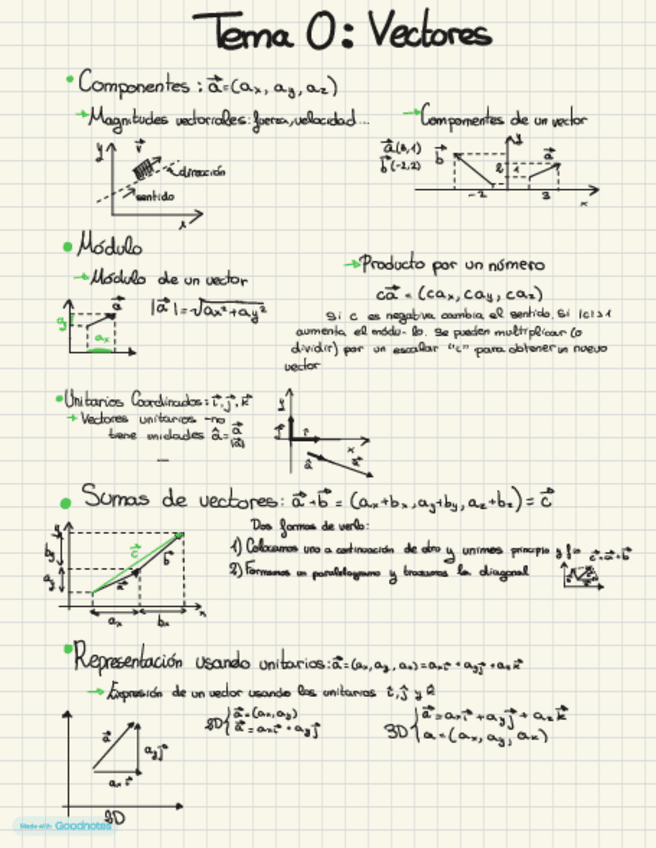 Tema 0: Vectores
Componentes: a⃗=(ax, ay, az)
→Magnitudes vectoriales: fuerza, velocidad...
→Componentes de un vector
y
v⃗
dirección
sentido
x
a⃗(3,1)
b⃗(-2,2)
b⃗
y
a⃗
2
1
-2
3
x
Módulo
→Módulo de un vector
a⃗
ay
ax
|a⃗|=√ax²+ay²
→Producto por un número
ca⃗ = (cax, cay, caz)
Si c es negativa cambia el sentido. Si |c|>1
aumenta el módu- lo. Se pueden multiplicar (o
dividir) por un escalar "c" para obtener un nuevo
vector
Unitarios Coordinados: i⃗, j⃗, k⃗
→ Vectores unitarios -no
tiene unidades â= a⃗/|a⃗|
—
y
j⃗
i⃗
x
â
a⃗
Sumas de vectores: a⃗+b⃗ = (ax+bx, ay+by, az+bz) = c⃗
Dos formas de verlo:
1) Colocamos uno a continuación de otro y unimos principio y fin c⃗=a⃗+b⃗
2) Formamos un paralelogramo y trazamos la diagonal
y
by
ay
c⃗
b⃗
a⃗
ax
bx
x
Representación usando unitarios: a⃗=(ax, ay, az)=axi⃗ + ayj⃗ + azk⃗
→ Expresión de un vector usando los unitarios i⃗, j⃗ y k⃗
a⃗
ayj⃗
axi⃗
2D
2D{ a⃗=(ax, ay)
a⃗=axi⃗ + ayj⃗
3D{ a⃗=axi⃗ + ayj⃗ + azk⃗
a=(ax, ay, az)
Made with Goodnotes